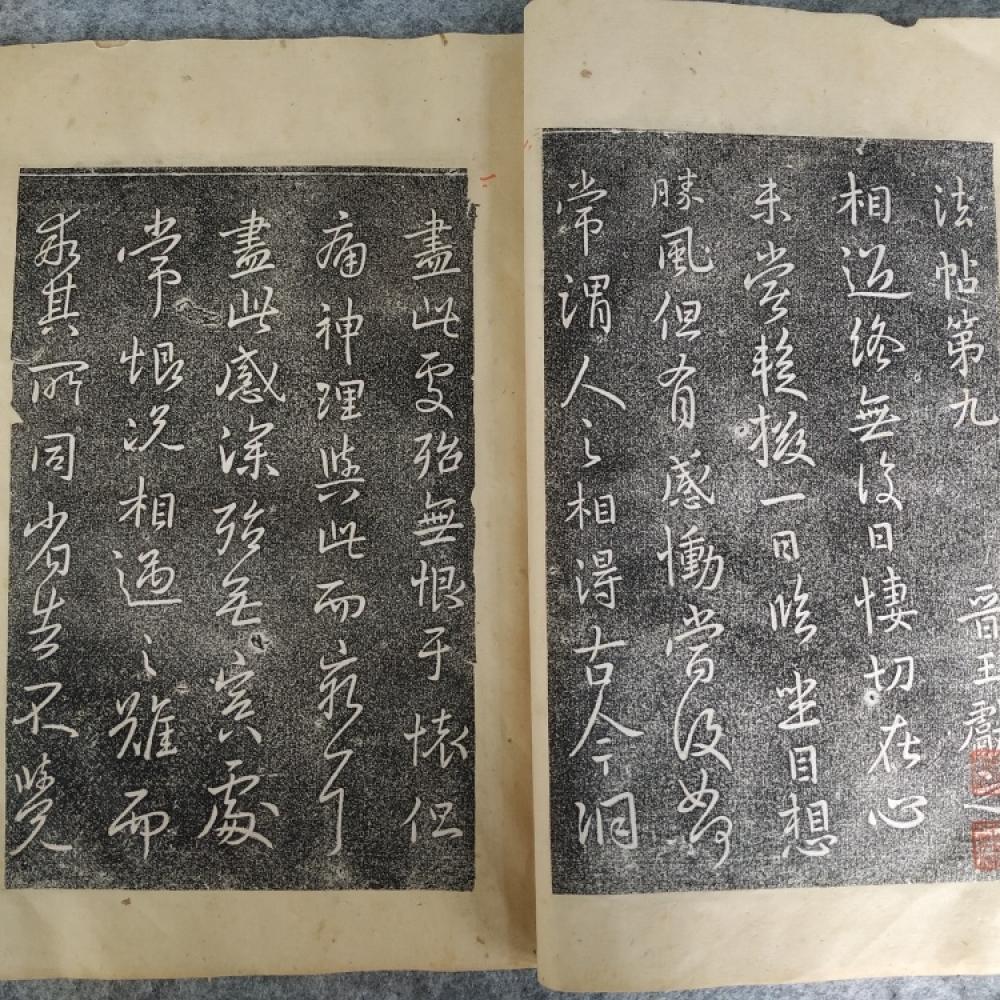 法帖第九
晉王獻之
相過終無復日悽切在心
未嘗暫掇一日臨坐目想
勝風但有感慟當復如何
常謂人之相得古今洞
盡此處殆無恨于懷但
痛神理與此而窮耳
盡此感深殆無冥處
常恨況相遇之難而
乖其所同省告不覺